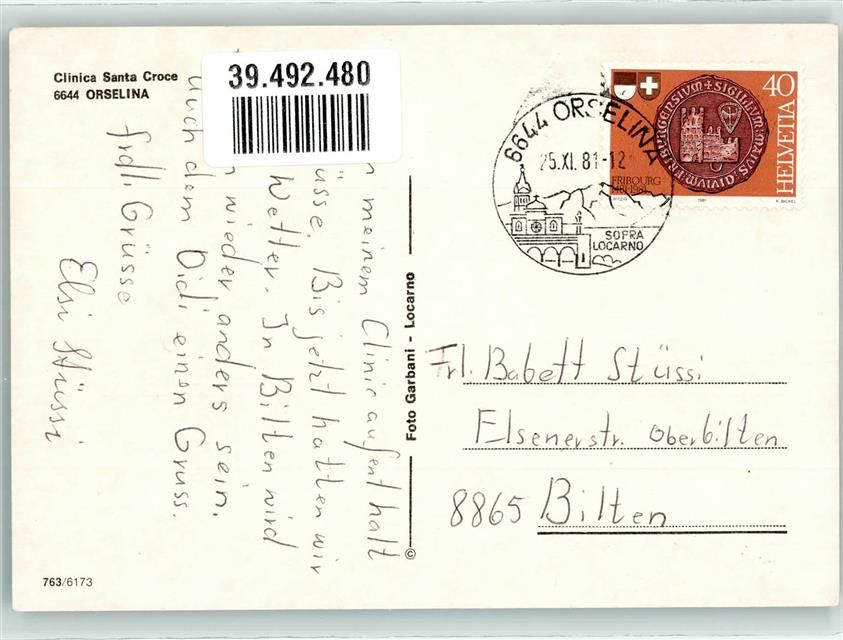 Clinica Santa Croce
6644 ORSELINA
39.492.480
meinem Clinicaufenthalt
Bis jetzt hatten wir
Wetter. In Bilten wird
wieder anders sein.
Auch dem Didi einen Gruss.
frdl. Grüsse
Elsi Stüssi
763/6173
© Foto Garbani - Locarno
6644 ORSELINA
25.XI.81-12
SOPRA
LOCARNO
40
HELVETIA
FRIBOURG
1481-1981
SIGILLUM MAIUS DIVIUM FRIBURGENSIUM
1981
K. BICKEL
Frl. Babett Stüssi
Elsenerstr. Oberbilten
8865 Bilten